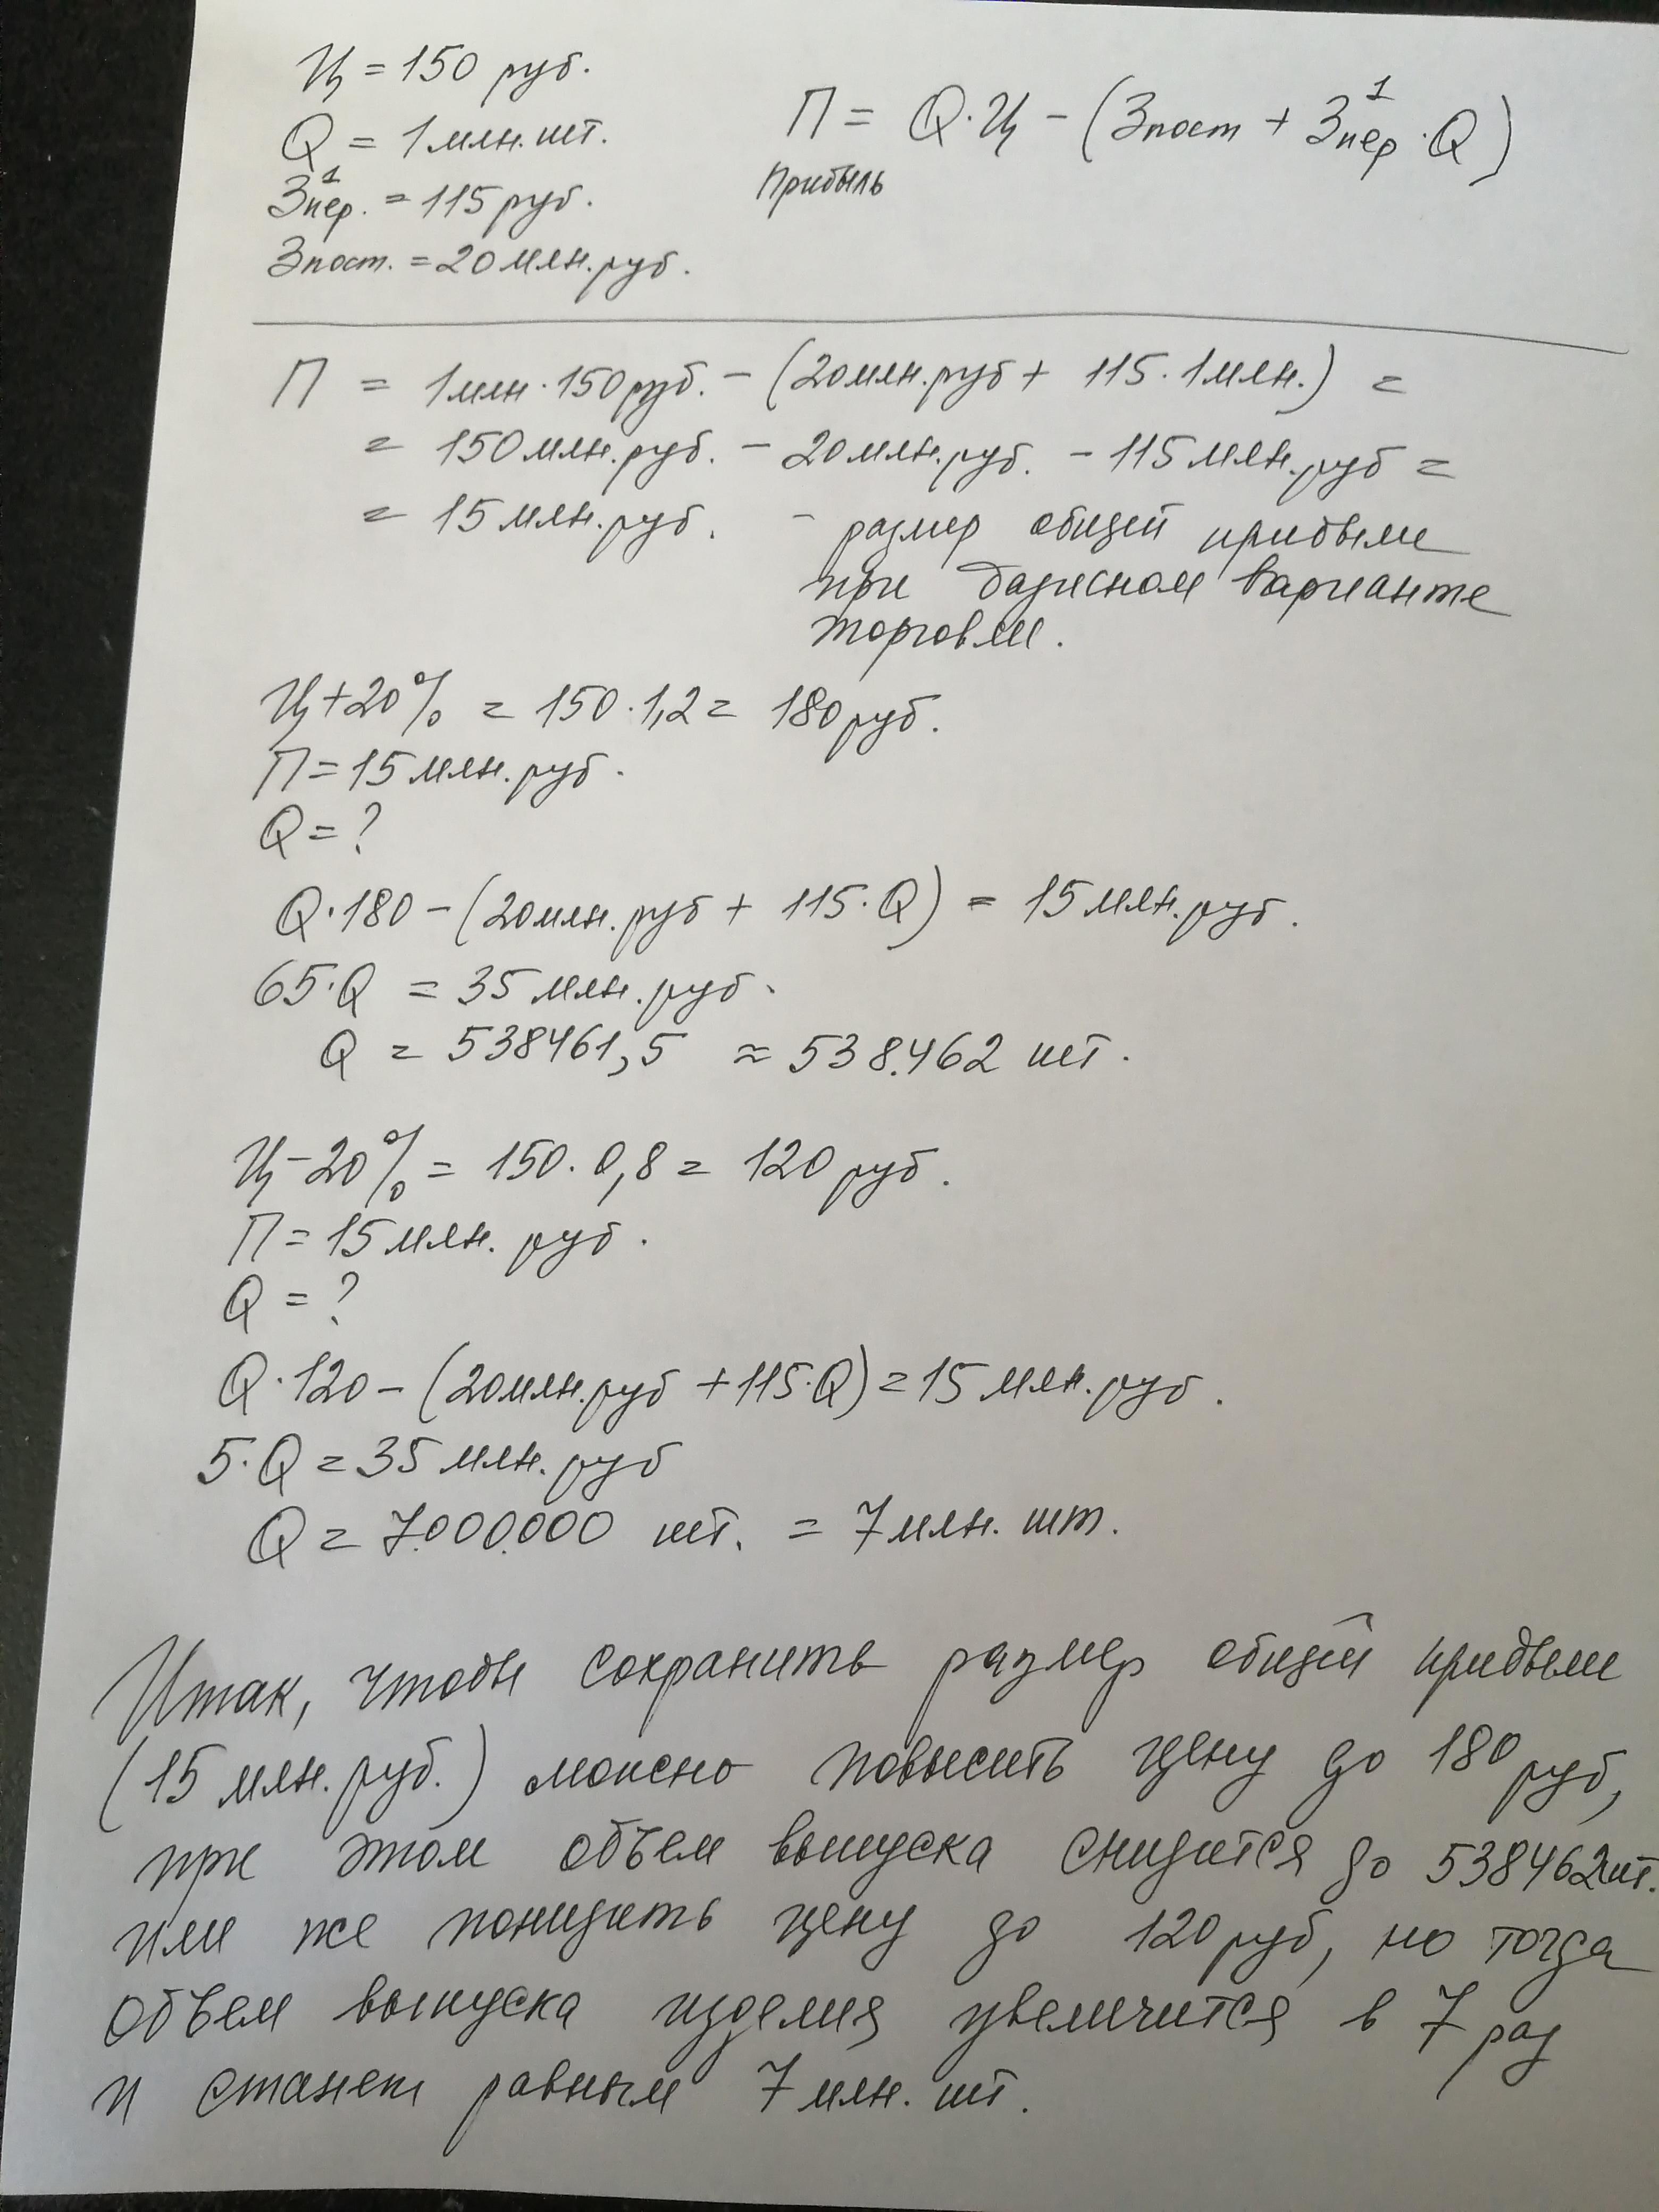 Ц = 150 руб.
Q = 1 млн. шт.
З¹пер. = 115 руб.
Зпост. = 20 млн. руб.
П = Q·Ц - (Зпост + З¹пер·Q)
Прибыль
П = 1 млн·150 руб. - (20 млн. руб + 115·1 млн.) =
= 150 млн. руб. - 20 млн. руб. - 115 млн. руб =
= 15 млн. руб. - размер общей прибыли
при базисном варианте
торговли.
Ц+20% = 150·1,2 = 180 руб.
П = 15 млн. руб.
Q = ?
Q·180 - (20 млн. руб + 115·Q) = 15 млн. руб.
65·Q = 35 млн. руб.
Q = 538461,5 ≈ 538.462 шт.
Ц-20% = 150·0,8 = 120 руб.
П = 15 млн. руб.
Q = ?
Q·120 - (20 млн. руб + 115·Q) = 15 млн. руб.
5·Q = 35 млн. руб
Q = 7.000.000 шт. = 7 млн. шт.
Итак, чтобы сохранить размер общей прибыли
(15 млн. руб.) можно повысить цену до 180 руб,
при этом объем выпуска снизится до 538462 шт.
или же понизить цену до 120 руб, но тогда
объем выпуска изделия увеличится в 7 раз
и станет равным 7 млн. шт.